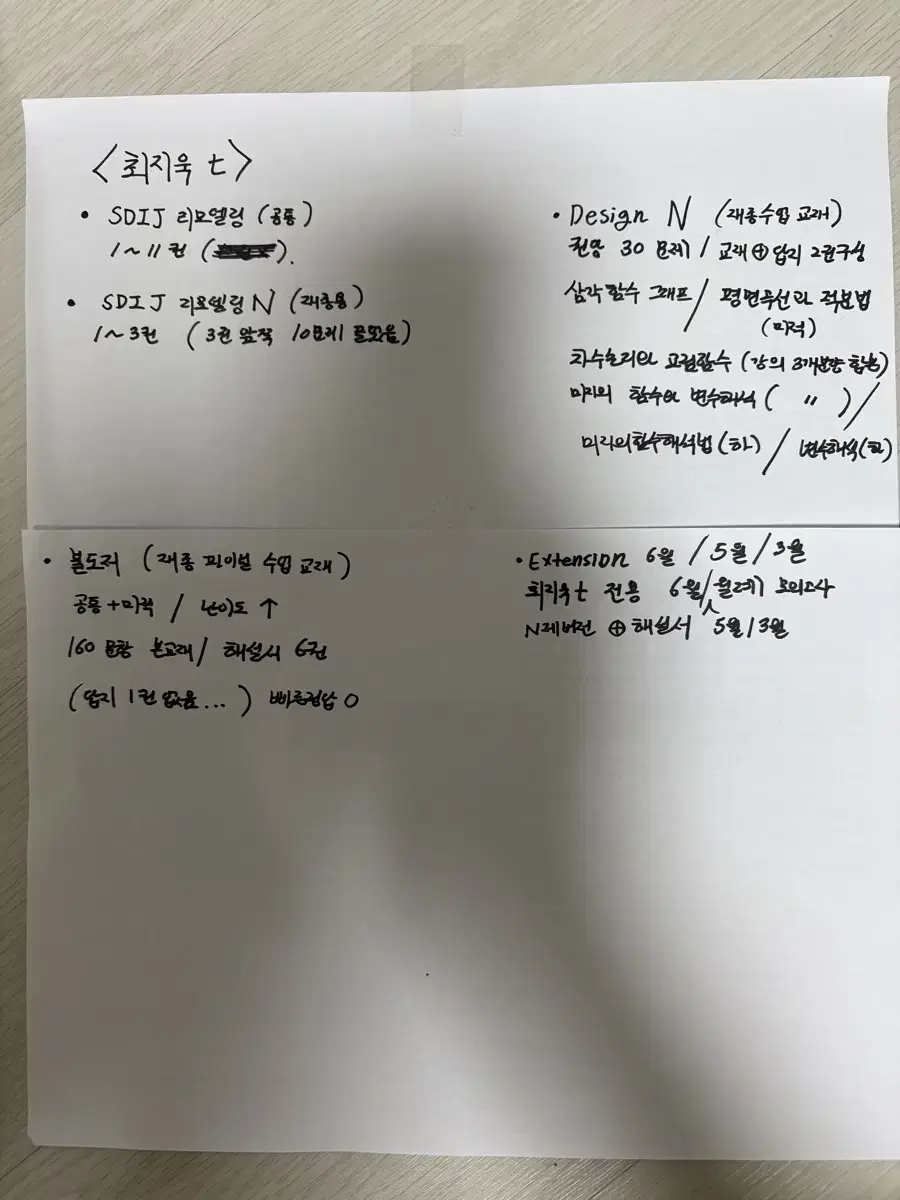 <최지욱 t>
• SDIJ 리모델링 (공통)
1~11권 ( ).
• SDIJ 리모델링 N (재종용)
1~3권 (3권 앞쪽 10문제 풀었음)
• Design N (재종수업 교재)
권당 30문제 / 교재⊕답지 2권구성
삼각함수 그래프 / 평면곡선과 적분법
(미적)
차수논리와 교점함수 (강의 3개분량 합본)
미지의 함수와 변수해석 ( 〃 ) /
미지의함수해석법(하) / 변수해석(하)
• 불도저 (재종 파이널 수업 교재)
공통+미적 / 난이도 ↑
160문항 본교재 / 해설서 6권
(답지 1권 없음...) 빠른정답 O
• Extension 6월 / 5월 / 3월
최지욱t 전용 6월/월례 모의고사
N제버전 ⊕ 해설서 5월/3월